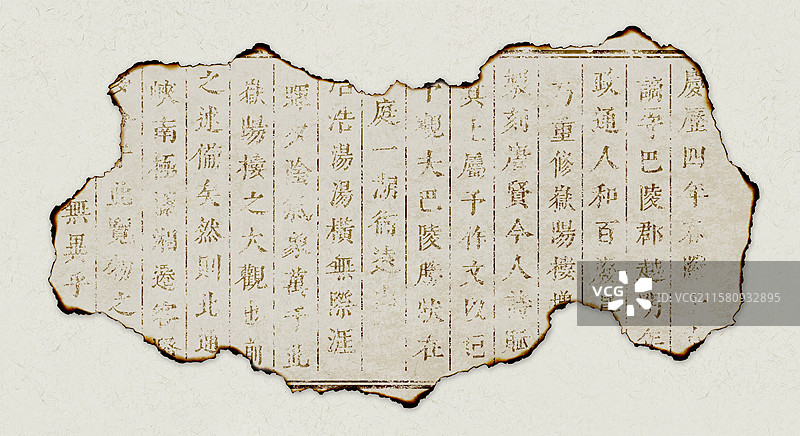 慶歷四年春
謫守巴陵郡越明年
政通人和百
乃重修嶽陽樓增
製刻唐賢今人詩賦
其上屬予作文以記
予觀夫巴陵勝狀在
庭一湖銜遠
浩浩湯湯橫無際涯
暉夕陰氣象萬千此
嶽陽樓之大觀也前
之述備矣然則此通
峽南極瀟湘遷客騷
此覽物之
無異乎
VCG
VCG.COM
ID: VCG211580932895